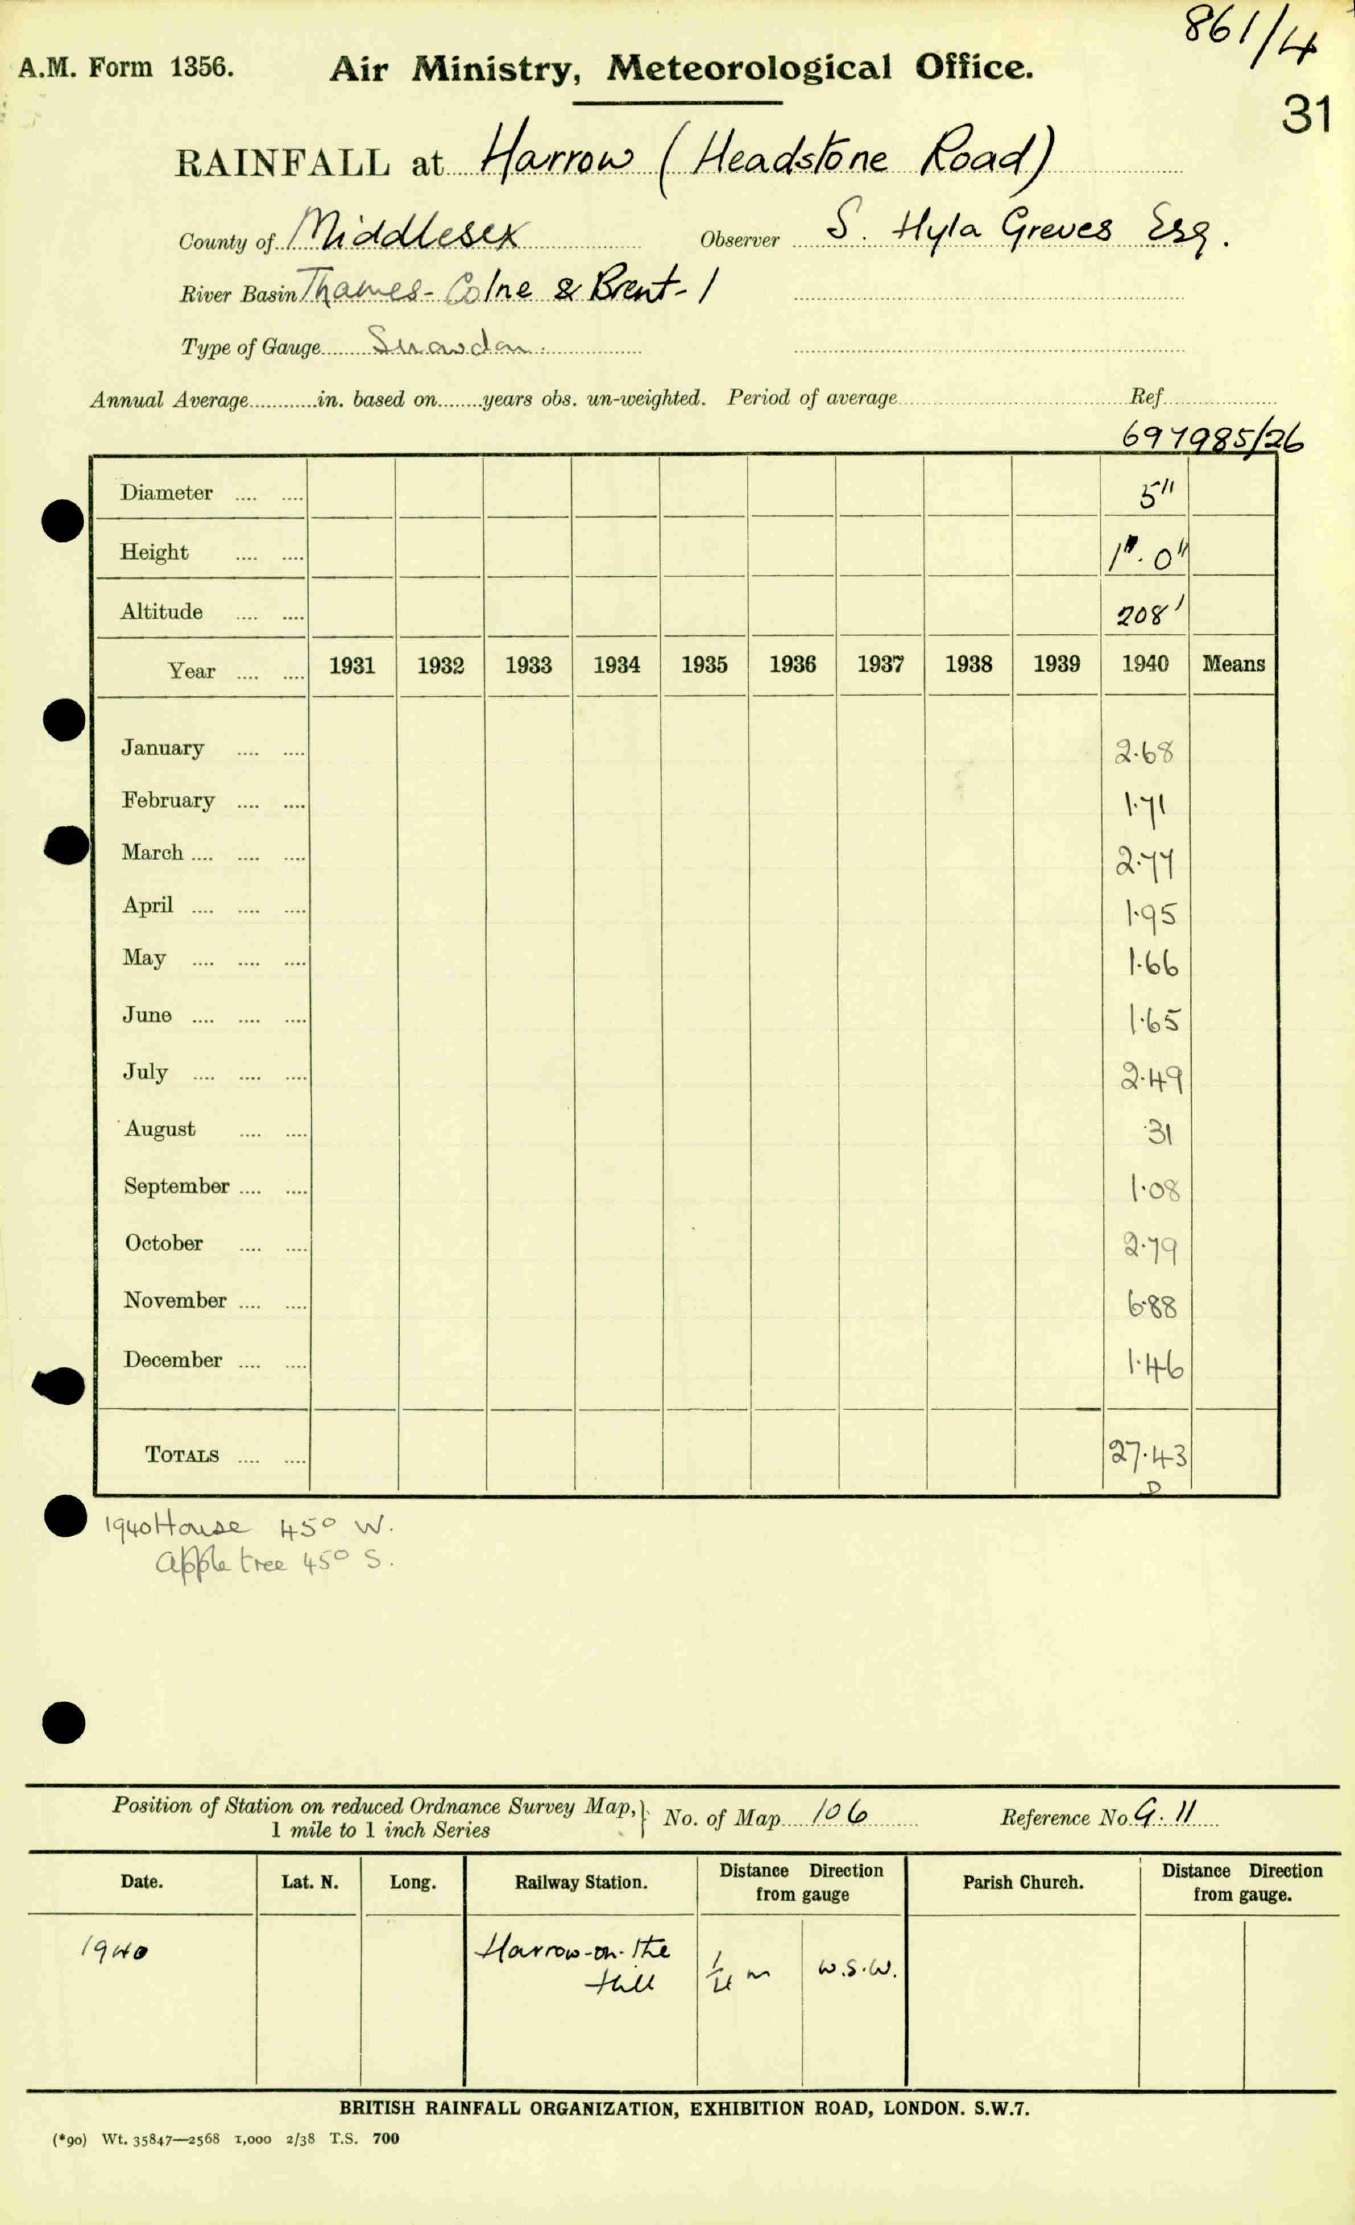 861/4
A.M. Form 1356. Air Ministry, Meteorological Office.
31
RAINFALL at Harrow (Headstone Road)
County of Middlesex Observer S. Hyla Greves Esq.
River Basin Thames - Colne & Brent - 1
Type of Gauge Snowdon.
Annual Average in. based on years obs. un-weighted. Period of average Ref.
697985/26
Diameter 5"
Height 1'. 0"
Altitude 208'
Year 1931 1932 1933 1934 1935 1936 1937 1938 1939 1940 Means
January 2.68
February 1.71
March 2.77
April 1.95
May 1.66
June 1.65
July 2.49
August .31
September 1.08
October 2.79
November 6.88
December 1.46
TOTALS 27.43
D
1940 House 45° W.
Apple tree 45° S.
Position of Station on reduced Ordnance Survey Map, } No. of Map 106 Reference No. G. 11
1 mile to 1 inch Series
Date. Lat. N. Long. Railway Station. Distance Direction from gauge Parish Church. Distance Direction from gauge.
1940 Harrow-on-the Hill 1/4 m W.S.W.
BRITISH RAINFALL ORGANIZATION, EXHIBITION ROAD, LONDON. S.W.7.
(*90) Wt. 35847—2568 1,000 2/38 T.S. 700